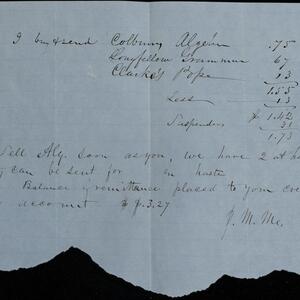 I hav send Colburn Algebra .75
Longfellow Grammar 67
Clarke's Pope 13
1.55
Less 13
$ 1.42
Suspenders 31
1.73
Tell Aly. soon as you, we have 2 at h
can be sent for in haste
Balance of remittance placed to your cre
account $ 3.27
J. M. Mc.